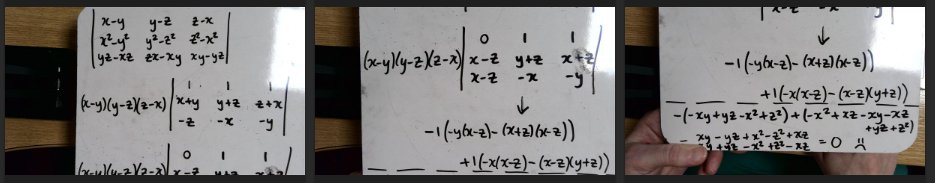 | x-y y-z z-x |
| x²-y² y²-z² z²-x² |
| yz-xz zx-xy xy-yz |
(x-y)(y-z)(z-x) | 1 1 1 |
| x+y y+z z+x |
| -z -x -y |
(x-y)(y-z)(z-x) | 0 1 1
x-z y+z
(x-y)(y-z)(z-x) | 0 1 1 |
| x-z y+z x+z |
| x-z -x -y |
↓
-1(-y(x-z)-(x+z)(x-z))
+1(-x(x-z)-(x-z)(y+z))
↓
-1(-y(x-z)-(x+z)(x-z))
+1(-x(x-z)-(x-z)(y+z))
-(-xy+yz-x²+z²)+(-x²+xz-xy-xz
+yz+z²)
= xy-yz+x²-z²+xz
-xy+yz-x²+z²-xz = 0